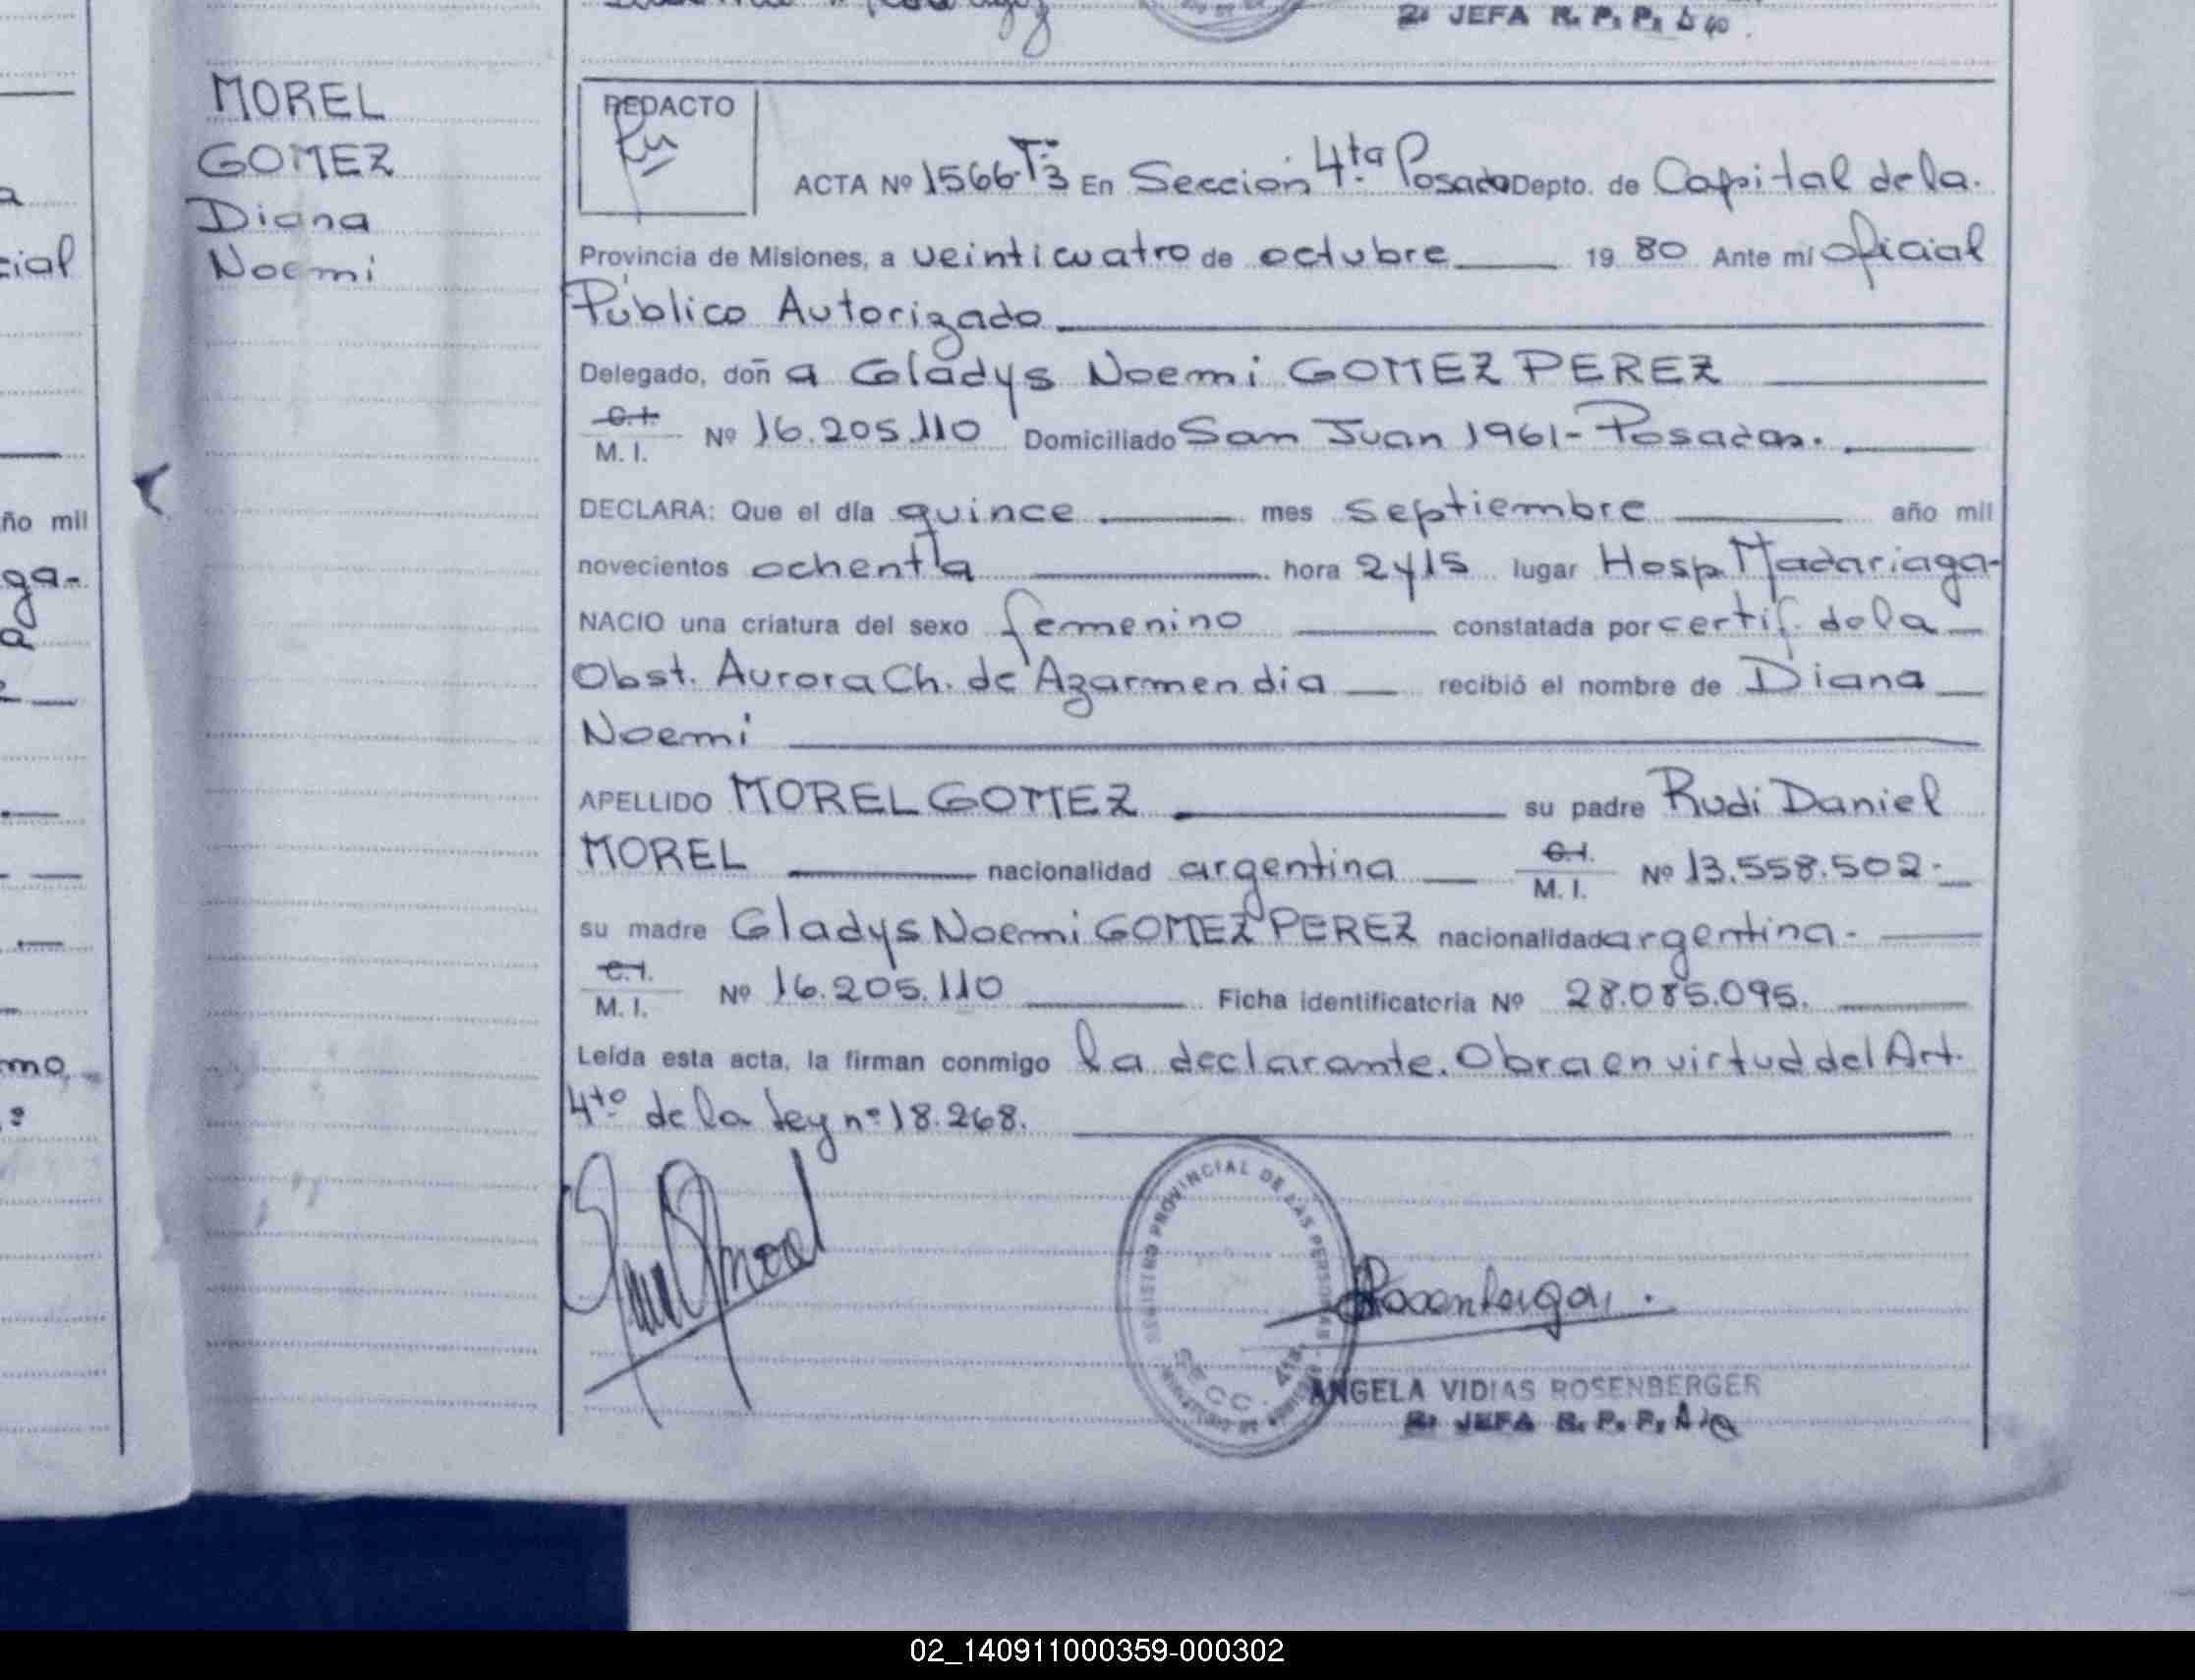 2ª JEFA R. P. P.
MOREL
GOMEZ
Diana
Noemi
REDACTO
ACTA Nº 1566 Tº3 En Sección 4ta Posadas Depto. de Capital de la
Provincia de Misiones, a veinticuatro de octubre 19 80 Ante mí oficial
Público Autorizado
Delegado, doñ a Gladys Noemi GOMEZ PEREZ
C.I.
M. I. Nº 16.205.110 Domiciliado San Juan 1961-Posadas.
DECLARA: Que el día quince mes septiembre año mil
novecientos ochenta hora 2 y 15 lugar Hosp. Madariaga-
NACIO una criatura del sexo femenino constatada por certif. de la
Obst. Aurora Ch. de Azarmendia recibió el nombre de Diana
Noemi
APELLIDO MOREL GOMEZ su padre Rudi Daniel
MOREL nacionalidad argentina C.I.
M. I. Nº 13.558.502-
su madre Gladys Noemi GOMEZ PEREZ nacionalidad argentina-
C.I.
M. I. Nº 16.205.110 Ficha identificatoria Nº 28.085.095.
Leída esta acta, la firman conmigo la declarante. Obra en virtud del Art.
4to de la ley nº 18.268.
REGISTRO PROVINCIAL DE LAS PERSONAS
SECC. 4ta
Rosenberger
ANGELA VIDIAS ROSENBERGER
2ª JEFA R. P. P.
cial
ño mil
ga-
mo
02_140911000359-000302